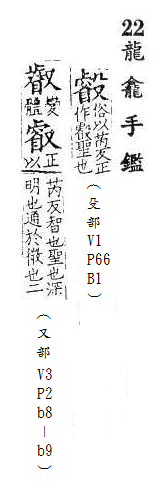 22龍龕手鑑
俗以芮反正
作叡聖也
(殳部V1P66B1)
變體
叡
正以
芮反智也聖也深
明也通於微也二
(又部V3P2b8-b9)